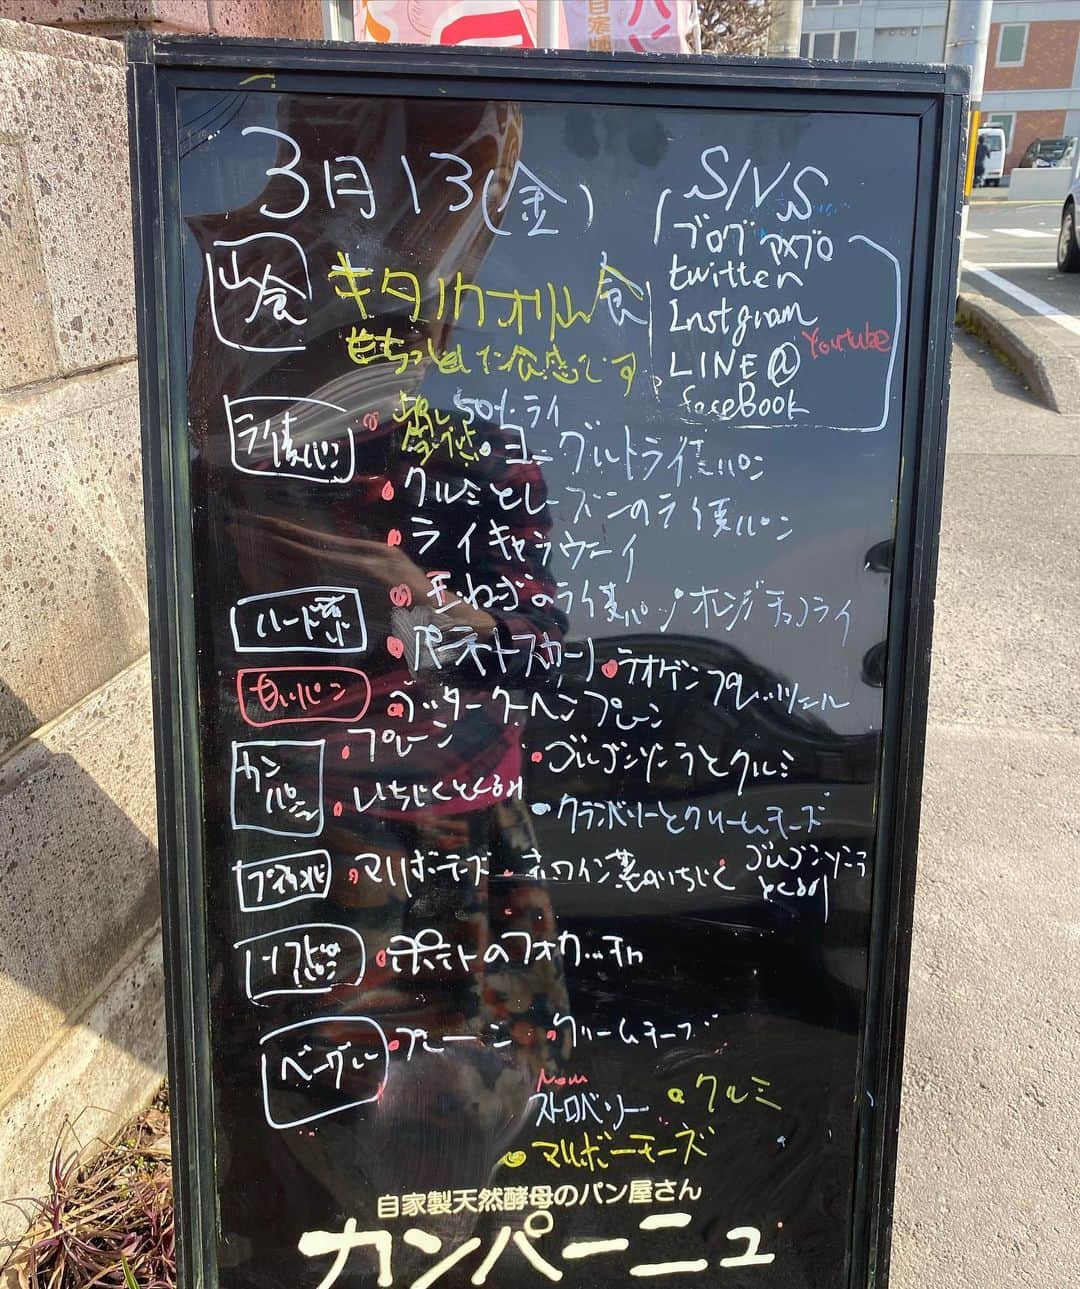 3月13(金)
SNS
ブログ アメブロ
twitter
Instgram
Youtube
LINE@
faceBook
山食
キタノカオリ山食
もちっとした食感です
ライ麦パン
50%ライ
ヨーグルトライ麦パン
クルミとレーズンのライ麦パン
ライキャラウェイ
玉ねぎのライ麦パン
オレンジチョコライ
ハード系
バゲットスカーノ
ラオゲンブレッツェル
甘いパン
ブッタークーヘンプレーン
カンパーニュ
プレーン
ゴルゴンゾーラとクルミ
いちじくとくるみ
クランベリーとクリームチーズ
プチカンパ
マリボーチーズ
赤ワイン煮のいちじく
ゴルゴンゾーラとくるみ
ソフト系パン
ポテトのフォカッチャ
ベーグル
プレーン
クリームチーズ
New
ストロベリー
クルミ
マリボーチーズ
自家製天然酵母のパン屋さん
カンパーニュ